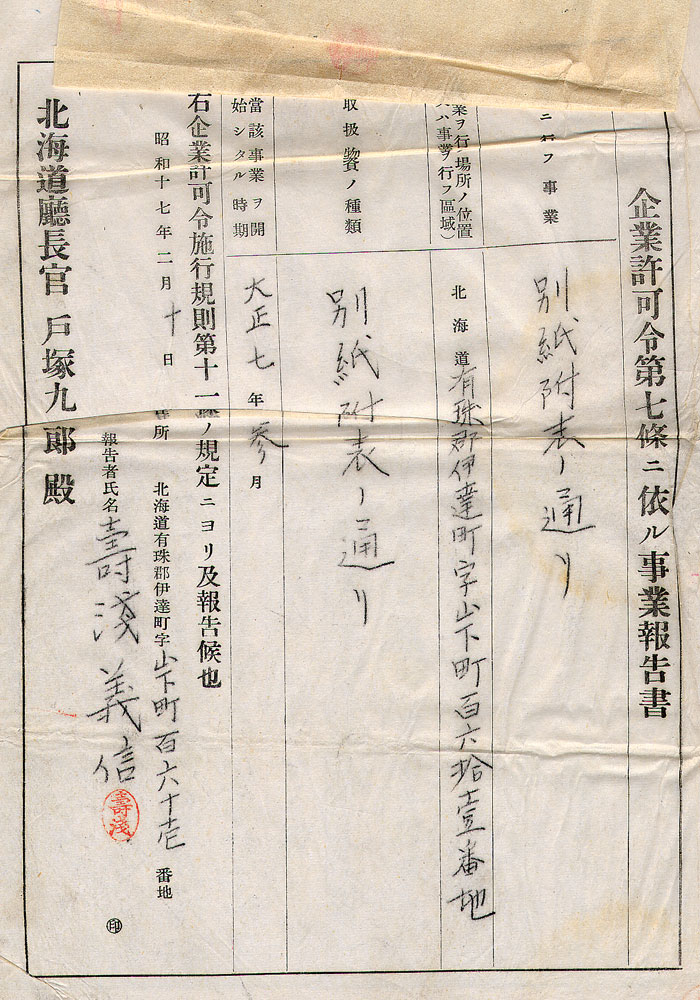 企業許可令第七條ニ依ル事業報告書
ニ行フ事業
別紙附表ノ通リ
業ヲ行フ場所ノ位置
又ハ事業ヲ行フ區域）
北海道有珠郡伊達町字山下町百六拾壹番地
取扱物資ノ種類
別紙附表ノ通リ
當該事業ヲ開
始シタル時期
大正七年參月
右企業許可令施行規則第十一條ノ規定ニヨリ及報告候也
昭和十七年二月十日
住所 北海道有珠郡伊達町字山下町百六十壱番地
報告者氏名 壽淺義信
壽淺
印
北海道廳長官 戶塚九一郎殿